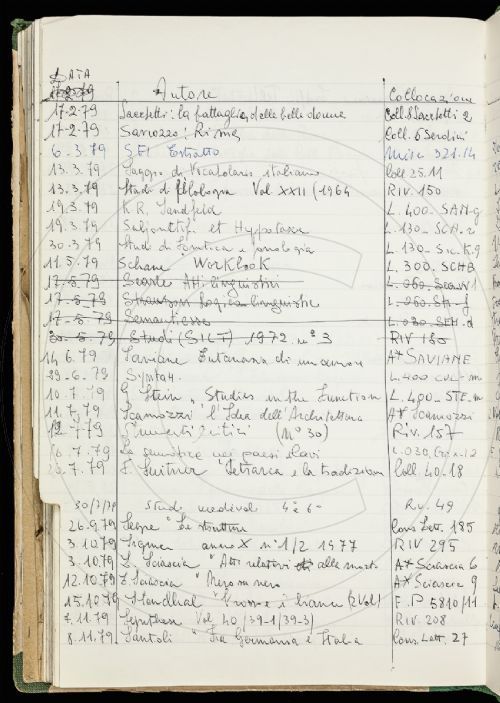 DATA
Autore Collocazione
17.2.79 Sacchetti: la battaglia delle belle donne Coll. 8 Sacchetti 2
17-2-79 Sanozzo: Rime Coll. 6 Serdini
6.3.79 SFI Estratto Misc 321.14
13.3.79 Saggio di Vocabolario italiano Coll 25.11
13.3.79 Studi di filologia Vol XXII (1964 RIV. 150
19.3.79 K.R. Sandfeld L. 400- SAN-g
19.3.79 et Hypotaxe L. 130-
30.3.79 Studi di fonetica e fonologia L. 130-
11.5.79 Schane WorkBook L. 300. SCHB
17.5.79 Searle Atti linguistici L. 060.
17.5.79 Logica linguistic L. 060
17.5.79 L. 030
Studi (SICT) 1972 n° 3 RIV
14.6.79 Saviane di un A* SAVIANE
29.6.79 Syntax. L.400
10.7.79 G Stern, Studies in the Function L. 400-STE.m
11.7.79 Scamozzi "l'Idea dell'Architettura A* Scamozzi
12.7.79 Strumenti critici (N° 30) RIV. 157
.7.79 La semiotica nei paesi slavi L.030
.7.79 F. Suitner "Petrarca e la tradizione Coll. 40.18
30/7/79 Studi medievali 4 e 6 Riv. 49
26.9.79 "Le strutture Cons. Lett. 185
3.10.79 anno X n° 1/2 1977 RIV 295
3.10.79 L. Sciascia "Atti relativi alla morte A* Sciascia 6
12.10.79 L. Sciascia "Nero su nero A* Sciascia 9
15.10.79 Stendhal "Rosso e bianco (2 Vol) F. P 5810/11
7.11.79 Synthese Vol. 40 /39-1/39-3) RIV. 208
8.11.79 Santoli "Fra Germania e Italia Cons. Lett. 27